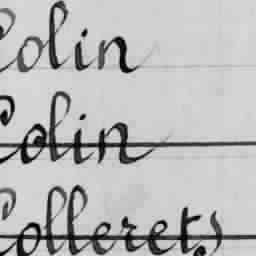 Colin
Colin
Collerets